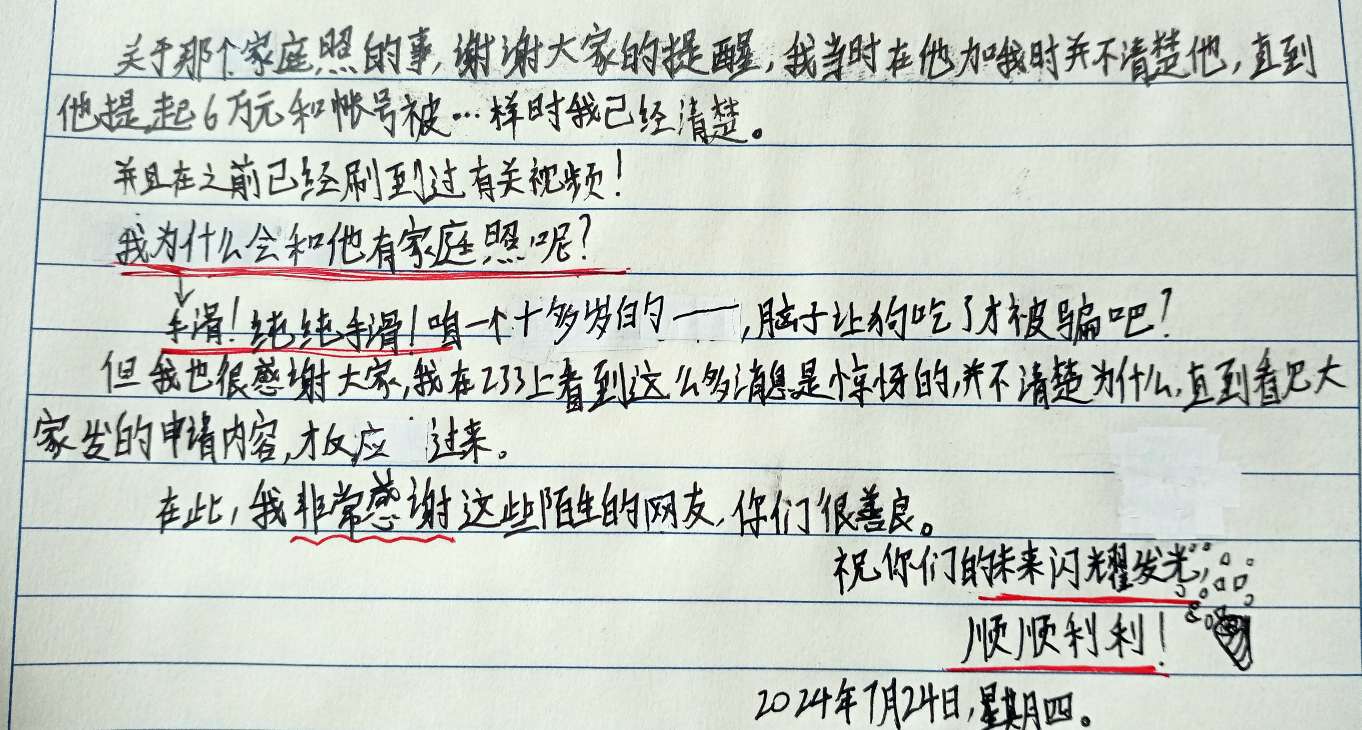 关于那个家庭照的事,谢谢大家的提醒,我当时在他加我时并不清楚他,直到
他提起6万元和帐号被…样时我已经清楚。
并且在之前已经刷到过有关视频!
我为什么会和他有家庭照呢?
手滑!纯纯手滑!咱一个十多岁的——,脑子让狗吃了才被骗吧?
但我也很感谢大家,我在233上看到这么多消息是惊讶的,并不清楚为什么,直到看见大
家发的申请内容,才反应 过来。
在此,我非常感谢这些陌生的网友,你们很善良。
祝你们的未来闪耀发光,
顺顺利利!
2024年7月24日,星期四。